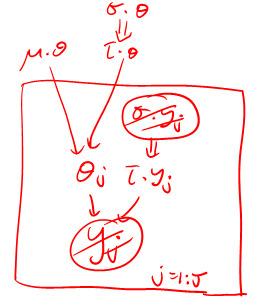 σ.θ
μ.θ τ.θ
σ.yj
θj τ.yj
yj
j=1:J